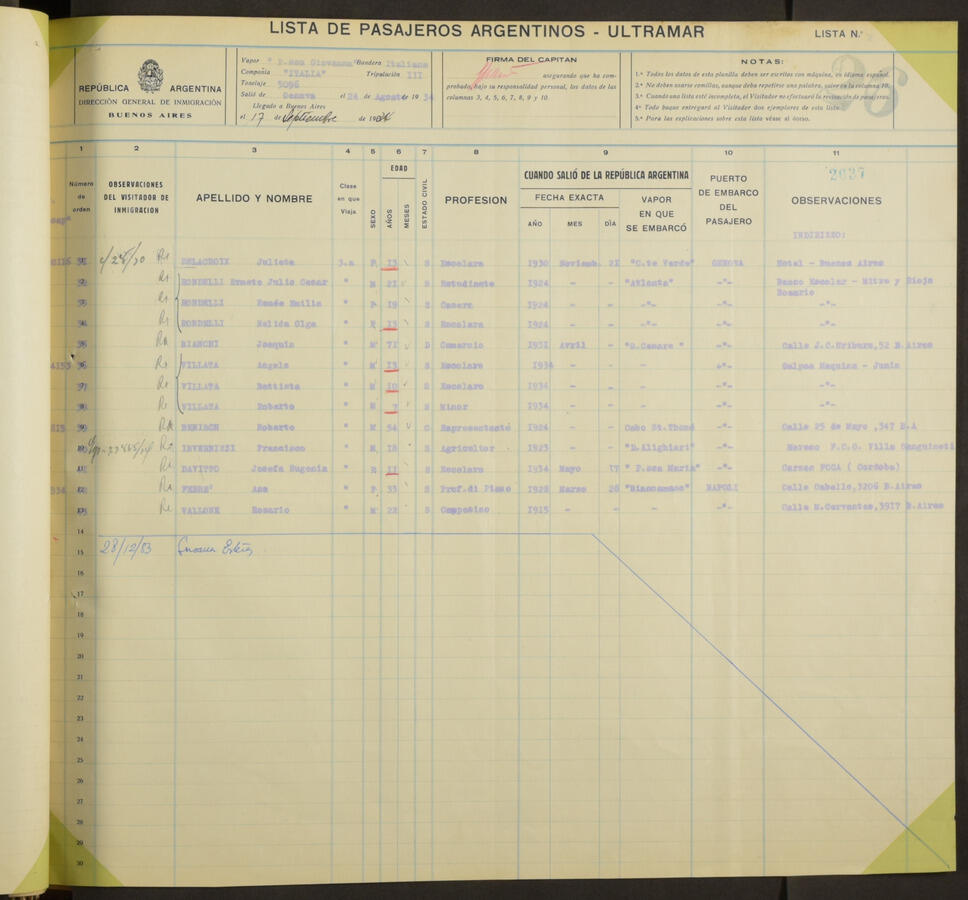 LISTA DE PASAJEROS ARGENTINOS - ULTRAMAR
LISTA N.°
REPÚBLICA ARGENTINA
DIRECCIÓN GENERAL DE INMIGRACIÓN
BUENOS AIRES
Vapor "P.ssa Giovanna" Bandera Italiana
Compañía "ITALIA" Tripulación III
Tonelaje 5096
Salió de Genova el 24 de Agost de 1934
Llegado a Buenos Aires
el 17 de Septiembre de 1934
FIRMA DEL CAPITAN
asegurando que ha com-
probado, bajo su responsabilidad personal, los datos de las
columnas 3, 4, 5, 6, 7, 8, 9 y 10.
NOTAS:
1.ª Todos los datos de esta planilla deben ser escritos con máquina, en idioma español.
2.ª No deben usarse comillas, aunque deba repetirse una palabra, salvo en la columna 10.
3.ª Cuando una lista esté incompleta, el Visitador no efectuará la revisación de pasajeros.
4.ª Todo buque entregará al Visitador dos ejemplares de esta lista.
5.ª Para las explicaciones sobre esta lista véase al dorso.
26
1 2 3 4 5 6 7 8 9 10 11
2037
Número de orden
OBSERVACIONES DEL VISITADOR DE INMIGRACION
APELLIDO Y NOMBRE
Clase en que Viaja
SEXO
EDAD
AÑOS
MESES
ESTADO CIVIL
PROFESION
CUANDO SALIÓ DE LA REPÚBLICA ARGENTINA
FECHA EXACTA
AÑO MES DÍA
VAPOR EN QUE SE EMBARCÓ
PUERTO DE EMBARCO DEL PASAJERO
OBSERVACIONES
INDIRIZZO:
DELACROIX Julieta 3.a F 13 S Escolara 1930 Noviemb. 21 "C.te Verde" GENOVA Hotel - Buenos Aires
RONDELLI Ernesto Julio Cesar " M 21 S Estudiante 1924 - - "Atlanta" -"- Banco Escolar - Mitre y Rioja Rosario
RONDELLI Renée Emilia " F 19 S Casera 1924 - - -"- -"-
RONDELLI Nelida Olga " F 15 S Escolara 1924 - - -"- -"-
BIANCHI Joaquin " M 71 Comercio 1931 Avril - "D.Cesare" -"- Calle J.C.Uriburu, 52 B.Aires
VILLATA Angelo " M 13 S Escolaro 1934 - - - -"- Galpon Maquina - Junin
VILLATA Battista " M 10 S Escolaro 1934 - - - -"- -"-
VILLATA Roberto " M 7 S Minor 1934 - - - -"- -"-
Roberto " M 54 C 1924 - - Cabo St.Thomé -"- Calle 25 de Mayo ,347 B.A
INVERNIZZI Francisco " M 18 S Agricultor 1923 - - "D.Alighieri" -"- Moreno F.C.O. Villa Sanguineti
DAVITTO Josefa Eugenia " F 11 S Escolara 1934 Mayo 17 "P.ssa Maria" -"- Carmen POCA ( Cordoba)
FERRE' Ana " F 33 S Prof.di Piano 1928 Marzo 28 "Biancamano" NAPOLI Calle Caballo, 3206 B.Aires
VALLONE Rosario " M 22 S Campesino 1915 - - - -"- Calle M.Cervantes, 3917 B.Aires
14
15 28/12/83
16
17
18
19
20
21
22
23
24
25
26
27
28
29
30